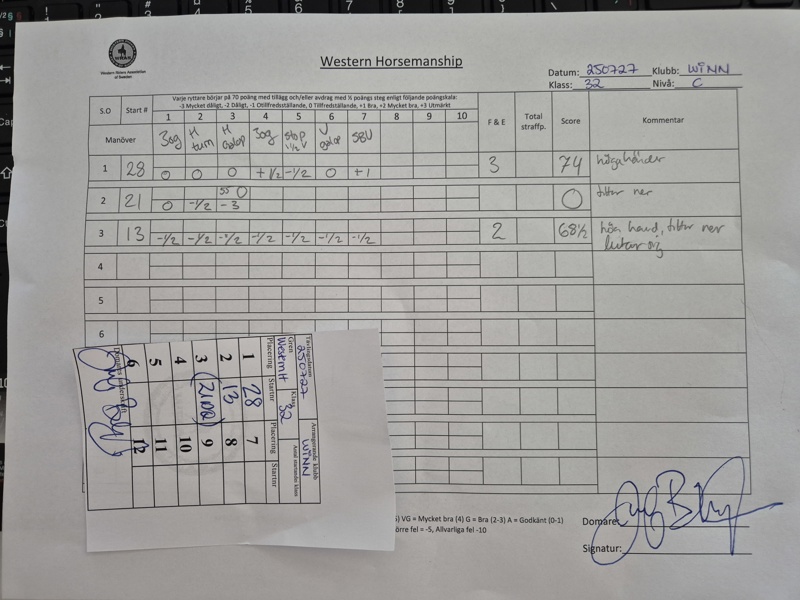 Western Horsemanship
WRAS
Western Riders Association
of Sweden
Datum: 250727 Klubb: WINN
Klass: 32 Nivå: C
S.O Start # Varje ryttare börjar på 70 poäng med tillägg och/eller avdrag med ½ poängs steg enligt följande poängskala:
-3 Mycket dåligt, -2 Dåligt, -1 Otillfredsställande, 0 Tillfredsställande, +1 Bra, +2 Mycket bra, +3 Utmärkt
1 2 3 4 5 6 7 8 9 10 F & E Total straffp. Score Kommentar
Manöver Jog H turn H Galop Jog stop 1½ V V galop SBU
1 28 0 0 0 +1/2 -1/2 0 +1 3 74 höga händer
2 21 0 -1/2 55 0 -3 0 tittar ner
3 13 -1/2 -1/2 -1/2 -1/2 -1/2 -1/2 -1/2 2 68½ hög hand, tittar ner
lutar sig
4
5
6
Tävlingsdatum Arrangerande klubb
250727 WINN
Gren Klass Antal startande i klass
Western H 32
Placering Startnr Placering Startnr
1 28 7
2 13 8
3 (21 DQ) 9
4 10
5 11
6 12
Domarens underskrift
VG = Mycket bra (4) G = Bra (2-3) A = Godkänt (0-1)
örre fel = -5, Allvarliga fel -10
Domare:
Signatur: